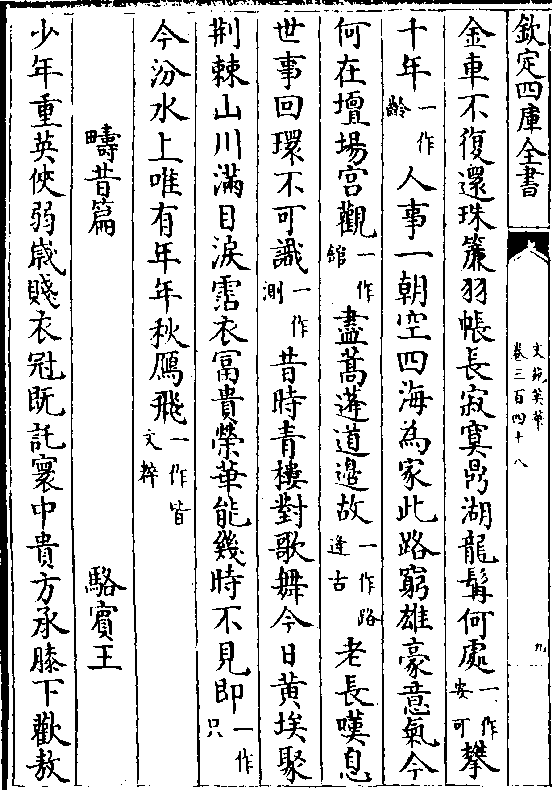 欽定四庫全書
文苑英華
卷三百四十八
九
金車不復還珠簾羽帳長寂寞鼎湖龍髯何處一作安可攀
十年一作齡人事一朝空四海為家此路窮雄豪意氣今
何在壇場宮觀一作館盡蒿蓬道邊故一作路逢古老長嘆息
世事回環不可識一作測昔時青樓對歌舞今日黄埃聚
荆棘山川滿目淚霑衣富貴榮華能幾時不見即一作只
今汾水上唯有年年秋鴈飛一作皆文粹
疇昔篇 駱賓王
少年重英俠弱歲賤衣冠既託寰中貴方承膝下歡敖